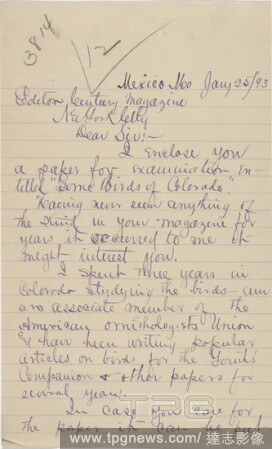 3814
12
Mexico Mo Jany 25/93
Editor Century Magazine
New York City
Dear Sir:—
I enclose you
a paper for examination en-
titled "Some Birds of Colorado."
Having never seen anything of
the kind in your magazine for
years it occured to me it
might interest you.
I spent three years in
Colorado studying the birds— am
an associate member of the
American Ornithologists Union
& have been writing popular
articles on birds for the Youth's
Companion & other papers for
several years.
In case you care for
the paper it can be
TPG
www.tpgnews.com/達志影像